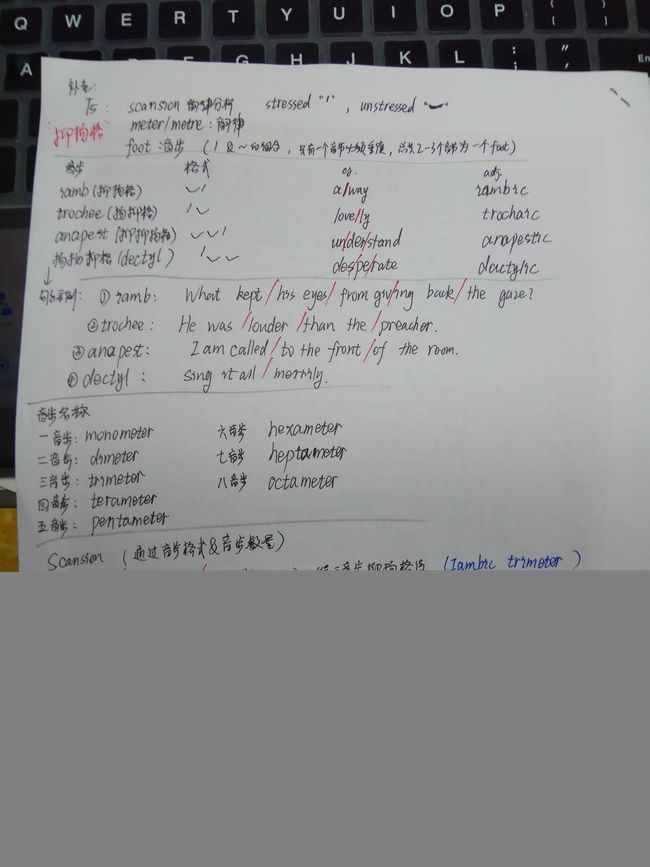 Q W E R T Y U I O P { [ } ]
A D F G H J K L : ; " ' En
补充:
P5: scansion 韵律分析 stressed "/", unstressed "⌣"
"抑扬格" meter/metre: 韵律
foot: 音步 (/ & ~ 的组合, 只有一个音节必须重读, 总共2-3个音节为一个foot)
音步 格式 eg. adj.
iamb (抑扬格) ⌣/ a/way iambic
trochee (扬抑格) /⌣ love/ly trochaic
anapest (抑抑扬格) ⌣⌣/ un/der/stand anapestic
扬抑抑格 (dectyl) /⌣⌣ des/pe/rate dectylic
句子示例: ① iamb: What kept / his eyes / from giv/ing back / the gaze?
② trochee: He was / louder / than the / preacher.
③ anapest: I am called / to the front / of the room.
④ dectyl: Sing it all / merrily.
音步名称
一音步: monometer 六音步 hexameter
二音步: dimeter 七音步 heptameter
三音步: trimeter 八音步 octameter
四音步: terameter
五音步: pentameter
Scansion (通过音步格式&音步数量)
三音步抑扬格 (Iambic trimeter)